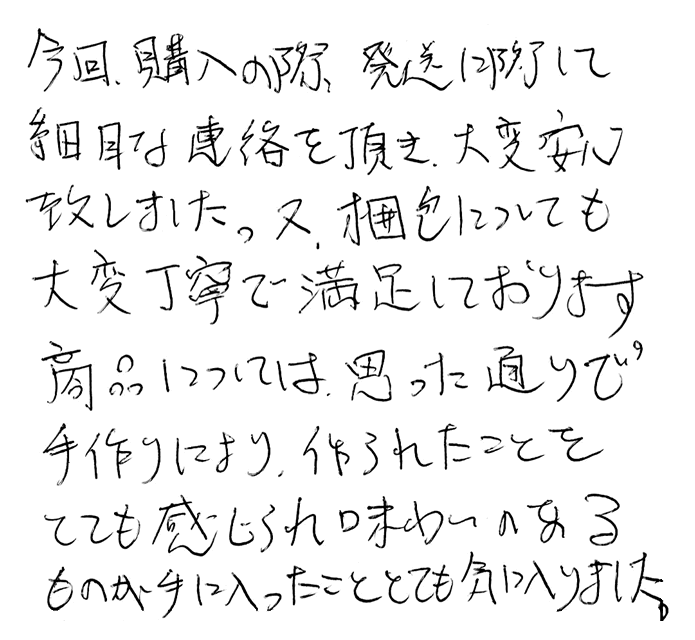 今回、購入の際、発送に際して
細目な連絡を頂き、大変安心
致しました。又、梱包についても
大変丁寧で満足しております
商品については、思った通りで
手作りにより、作られたことを
とても感じられ味わいのある
ものが手に入ったこととても気に入りました。